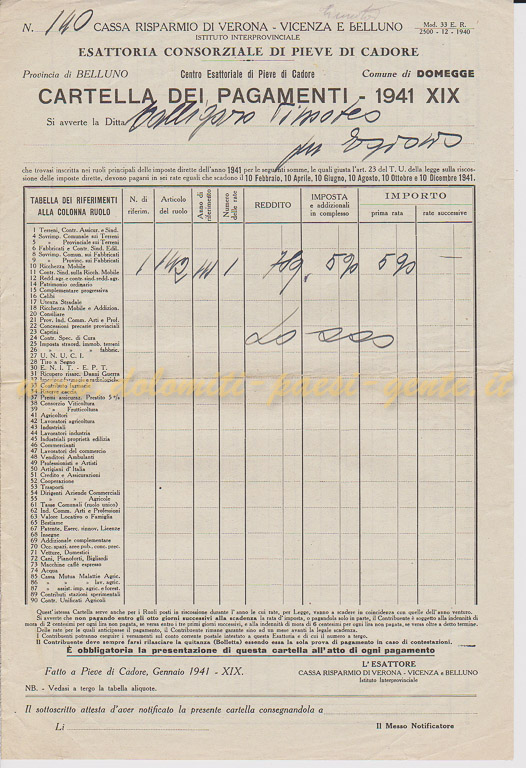 N. 140 CASSA RISPARMIO DI VERONA - VICENZA E BELLUNO
ISTITUTO INTERPROVINCIALE
Mod. 33 E. R.
2500 - 12 - 1940
ESATTORIA CONSORZIALE DI PIEVE DI CADORE
Provincia di BELLUNO Centro Esattoriale di Pieve di Cadore Comune di DOMEGGE
CARTELLA DEI PAGAMENTI - 1941 XIX
Si avverte la Ditta
che trovasi inscritta nei ruoli principali delle imposte dirette dell'anno 1941 per le seguenti somme, le quali giusta l'art. 23 del T. U. della legge sulla riscos-
sione delle imposte dirette, devono pagarsi in sei rate eguali che scadono il 10 Febbraio, 10 Aprile, 10 Giugno, 10 Agosto, 10 Ottobre e 10 Dicembre 1941.
TABELLA DEI RIFERIMENTI
ALLA COLONNA RUOLO
N. di
riferim.
Articolo
del ruolo
Anno di
riferimento
Numero
delle rate
REDDITO
IMPOSTA
e addizionali
in complesso
IMPORTO
prima rata
rate successive
1 Terreni, Contr. Assicur. e Sind.
4 Sovrimp. Comunale sui Terreni
5 » Provinciale sui Terreni
6 Fabbricati e Contr. Sind. Edil.
8 Sovrimp. Comun. sui Fabbricati
9 » Provinc. sui Fabbricati
10 Ricchezza Mobile
11 Contr. Sind. sulla Ricch. Mobile
12 Redd. agr. e contr. sind. redd. agr.
14 Patrimonio ordinario
15 Complementare progressiva
16 Celibi
17 Utenza Stradale
18 Ricchezza Mobile e Addizion.
20 Consiliare
21 Prov. Ind. Comm. Arti e Prof.
22 Concessioni precarie provinciali
23 Captini
24 Contr. Spec. di Cura
25 Imposta straord. immob. terreni
26 » » » fabbric.
27 U. N. U. C. I.
28 Tiro a Segno
30 E. N. I. T. - E. P. T.
31 Ricupero risarc. Danni Guerra
37 Premi assicuraz. Prestito 5%
38 Consorzio Viticoltura
39 » Frutticoltura
41 Agricoltori
42 Lavoratori agricoltura
43 Industriali
44 Lavoratori industria
45 Industriali proprietà edilizia
46 Commercianti
47 Lavoratori del commercio
48 Venditori Ambulanti
49 Professionisti e Artisti
50 Artigiani d'Italia
51 Credito e Assicurazioni
52 Cooperazione
53 Trasporti
54 Dirigenti Aziende Commerciali
55 » » Agricole
61 Tasse Comunali (ruolo unico)
62 Ind. Comm. Arti e Professioni
63 Valore Locativo o Famiglia
65 Bestiame
67 Patente, Eserc. rinnov, Licenze
68 Insegne
69 Addizionale complementare
70 Occ. spazi aree pub., conc. prec.
71 Vetture, Domestici
72 Cani, Pianoforti, Bigliardi
73 Macchine caffè espresso
74 Acqua
85 Cassa Mutua Malattie Agric.
86 » » » lav. agric.
87 » assist. imp. agric. e forest.
89 Contributi stazioni sperimentali
90 Contr. Unificati Agricoli
1 1 590 590
www.dolomiti-paesi-gente.it
Quest'istessa Cartella serve anche per i Ruoli posti in riscossione durante l'anno le cui rate, per Legge, vanno a scadere in coincidenza con quelle dell'anno venturo.
Si avverte che non pagando entro gli otto giorni successivi alla scadenza la rata d'imposta, o pagandola solo in parte, il Contribuente è soggetto alla indennità
di mora di 2 centesimi per ogni lira non pagata, se versa entro i tre primi giorni successivi, e alla indennità di mora di 6 centesimi per ogni lira non pagata, se versa oltre a detto termine.
Delle rate per le quali anticipasse il pagamento, il Contribuente rimane garante sino ad un mese avanti la legale scadenza.
I Contribuenti potranno eseguire i versamenti sul conto corrente postale intestato a questa Esattoria e di cui il numero a tergo.
Il Contribuente deve sempre farsi rilasciare la quitanza (Bolletta) essendo essa la sola prova di pagamento in caso di contestazioni.
È obbligatoria la presentazione di questa cartella all'atto di ogni pagamento
Fatto a Pieve di Cadore, Gennaio 1941 - XIX.
L'ESATTORE
CASSA RISPARMIO DI VERONA - VICENZA e BELLUNO
Istituto Interprovinciale
NB. - Vedasi a tergo la tabella aliquote.
Il sottoscritto attesta d'aver notificato la presente cartella consegnandola a
Li
Il Messo Notificatore